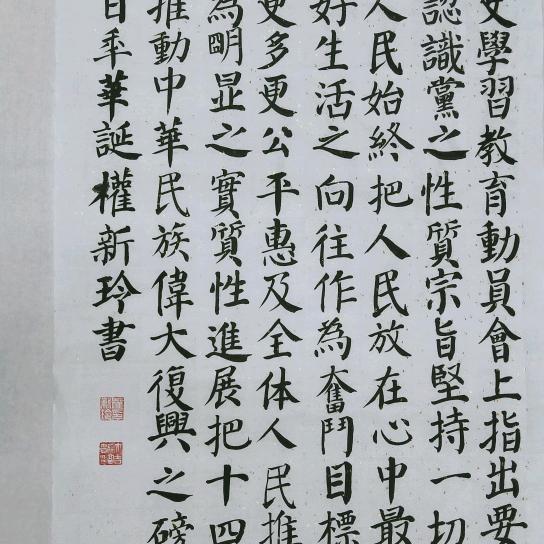 史學習教育動員會上指出要
認識黨之性質宗旨堅持一切
人民始終把人民放在心中最
好生活之向往作為奮鬥目標
更多更公平惠及全体人民推
為明显之實質性進展把十四
推動中華民族偉大復興之磅
百年華誕權新玲書